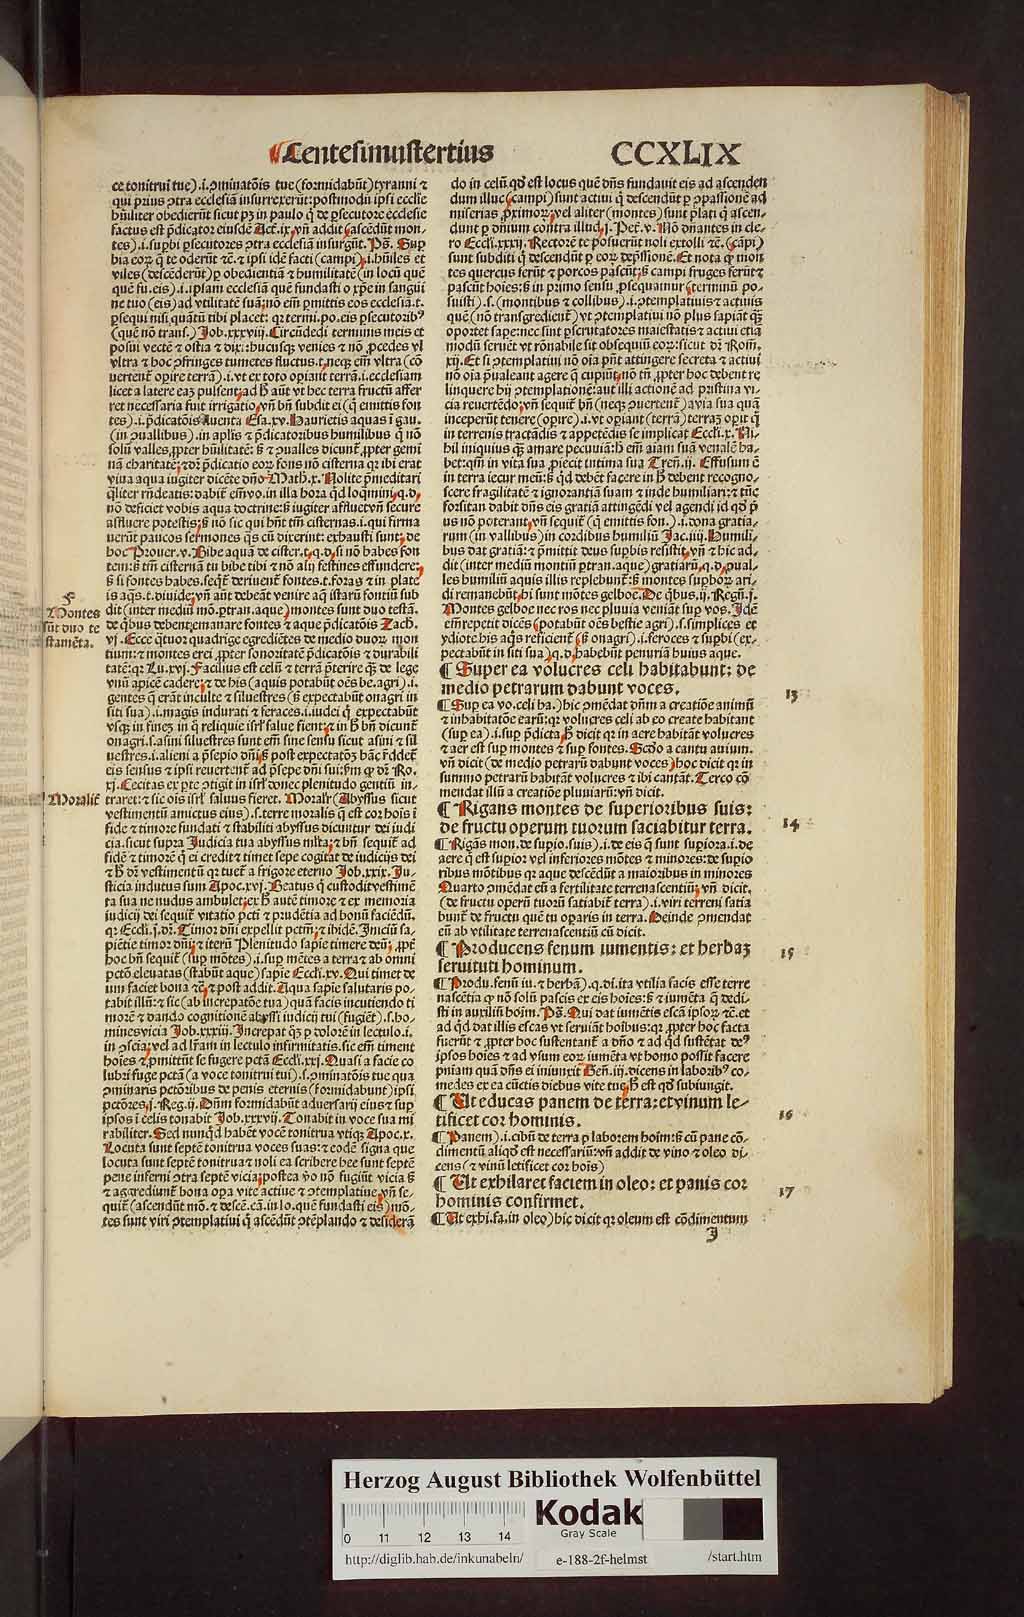 Centesimustertius
CCXLIX
ce tonitrui tue).i.ꝯminatõis tue (formidabũt)tyranni ⁊
qui prius ꝯtra ecclesiã insurrexerũt: postmodũ ipsi ecclie
hũiliter obedierũt sicut pꝫ in paulo ꝗ̃ de ꝑsecutore ecclesie
factus est p̃dicator eiusdẽ Act.ix. vñ addit ascẽdũt mon-
tes).i.suꝑbi ꝑsecutores ꝯtra ecclesiã insurgũt. Ps̃. Suꝑ
bia eoꝝ ꝗ̃ te oderũt ⁊c̃. ⁊ ipsi idẽ facti (campi).i.hũiles et
viles (descẽderũt) ꝑ obedientiã ⁊ humilitatẽ (in locũ quẽ
que fu. eis).i.ipsam ecclesiã quẽ fundasti o xp̃e in sangui
ne tuo (eis) ad vtilitatẽ suã: nõ em̃ ꝑmittis eos ecclesiã.t.
ꝑsequi nisi quãtũ tibi placet: qꝛ termi.po.eis ꝑsecutoribꝰ
(quẽ nõ trans.) Job.xxxviij. Circũdedi terminis meis et
posui vectẽ ⁊ ostia ⁊ dixi: hucusqꝫ venies ⁊ nõ ꝓcedes vl
vltra ⁊ hoc ꝯfringes tumẽtes fluctus.t. neqꝫ em̃ vltra (cõ
uertent̃ oꝑire terrã).i.vt ex toto oꝑiant terrã.i.ecclesiam
licet a latere eaꝫ pulsent: ad h̃ aũt vt hec terra fructũ affer
ret necessaria fuit irrigatio. vñ bñ subdit ei (ꝗ̃ emittis fon
tes).i.p̃dicatõis fluenta Esa.xv. Haurietis aquas i gau.
(in ꝯuallibus).in apl̃is ⁊ p̃dicatoribus humilibus ꝗ̃ nõ
solũ valles ꝓpter hũilitatẽ: s̃ ⁊ ꝯualles dicunt̃ ꝓpter gemi
nã charitatẽ: ⁊ dr̃ p̃dicatio eoꝝ fons nõ cisterna qꝛ ibi erat
viua aqua iugiter dicẽte dño Math.x. Nolite p̃meditari
ꝗ̃liter rñdeatis: dabit̃ em̃ vo.in illa hora qd̃ loqͥmini.q.d.
nõ deficiet vobis aqua doctrine: s̃ iugiter affluet vñ secure
affluere potestis: s̃ nõ sic qui hñt tm̃ cisternas.i.qui firma
uerũt paucos sermones qͥs cũ dixerint: exhausti sunt: de
hoc Prouer.v. Bibe aquã de cister.t. q.d. si nõ habes fon
tem: s̃ tm̃ cisternã tu bibe tibi ⁊ nõ alij festines effundere:
s̃ si fontes habes. seqͭ deriuent̃ fontes.t.foras ⁊ in plate
is aqͣs.t.diuide: vñ aũt debeãt venire aq̃ istarũ fontiũ sub
dit (inter mediũ mõ.ꝑtran.aque) montes sunt duo testã.
de qͥbus debent emanare fontes ⁊ aque p̃dicatõis Zach.
vj. Ecce qͣtuor quadrige egrediẽtes de medio duoꝝ mon
tium: ⁊ montes erei ꝓpter sonoritatẽ p̃dicatõis ⁊ durabili
tatẽ: qꝛ Lu.xvj. Facilius est celũ ⁊ terrã p̃terire qͣꝫ de lege
vnũ apicẽ cadere: ⁊ de his (aquis potabũt oẽs be.agri).i.
gentes ꝗ̃ erãt inculte ⁊ siluestres (s̃ expectabũt onagri in
siti sua).i.magis indurati ⁊ feraces.i.iudei ꝗ̃ expectabũt
vsqꝫ in finem in ꝗ̃ reliquie isrl̃ salue fient: ⁊ in h̃ bñ dicunt̃
onagri.s.asini siluestres sunt em̃ sine sensu sicut asini ⁊ sil
uestres.i.alieni a p̃sepio dñi s̃ post expectatõꝫ hãc r̃ddet̃
eis sensus ⁊ ipsi reuertent̃ ad p̃sepe dñi sui: sm̃ ꝙ dr̃ Ro.
xj. Cecitas ex ꝑte ꝯtigit in isrl̃ donec plenitudo gentiũ in-
traret: ⁊ sic ois isrl̃ saluus fieret. Moralr̃ (Abyssus sicut
vestimentũ amictus eius).s.terre moralis ꝗ̃ est cor hoĩs i
fide ⁊ timore fundati ⁊ stabiliti abyssus dicuntur dei iudi
cia.sicut supra Judicia tua abyssus mĩta: ⁊ bñ sequit̃ ad
fidẽ ⁊ timorẽ ꝗ̃ ei credit ⁊ timet sepe cogitat de iudicijs dei
⁊ h̃ dr̃ vestimentũ qꝛ tuet̃ a frigore eterno Job.xxix. Ju-
sticia indutus sum Apoc.xvj. Beatus ꝗ̃ custodit vestimẽ
ta sua ne nudus ambulet: ex h̃ autẽ timore ⁊ ex memoria
iudicij dei sequit̃ vitatio pctĩ ⁊ prudẽtia ad bonũ faciẽdũ.
qꝛ Eccli.j. dr̃. Timor dñi expellit pctm̃: ⁊ ibidẽ. Jniciũ sa-
piẽtie timor dñi: ⁊ iterũ Plenitudo sapie timere deũ: ꝓpt̃
hoc bñ sequit̃ (suꝑ mõtes).i.suꝑ mẽtes a terra ⁊ ab omni
pctõ eleuatas (stabũt aque) sapie Eccli.xv. Qui timet de
um faciet bona ⁊c̃. ⁊ post addit. Aqua sapie salutaris po-
tabit illũ: ⁊ sic (ab increpatõe tua) quã facis incutiendo ti
morẽ ⁊ dando cognitionẽ abyssi iudicij tui (fugiẽt).s.ho-
mines vicia Job.xxxiij. Jncrepat qͣꝫ ꝑ dolorẽ in lectulo.i.
in ꝯscia: vel ad lr̃am in lectulo infirmitatis. sic em̃ timent
hoies ⁊ ꝓmittũt se fugere pctã Eccli.xxj. Quasi a facie co
lubri fuge pctã (a voce tonitrui tui).s.ꝯminatõis tue qua
ꝯminaris pctõribus de penis eternis (formidabunt) ipsi
pctõres.j. Reg.ij. Dñm formidabũt aduersarij eius ⁊ suꝑ
ipsos i celis tonabit Job.xxxvij. Tonabit in voce sua mi
rabiliter. Sed nunqͥd habẽt vocẽ tonitrua vtiqꝫ Apoc.x.
Locuta sunt septẽ tonitrua voces suas: ⁊ eodẽ signa que
locuta sunt septẽ tonitrua ⁊ noli ea scribere hec sunt septẽ
pene inferni ꝯtra septẽ vicia: postea v̊o nõ fugiũt vicia s̃
⁊ aggrediunt̃ bona oꝑa vite actiue ⁊ ꝯtemplatiue. vñ se-
quit̃ (ascendũt mõ.⁊ descẽ.cã.in lo.quẽ fundasti eis) mõ-
tes sunt viri ꝯtemplatiui ꝗ̃ ascẽdũt ꝯtẽplando ⁊ desiderã
Montes
sũt duo te
stamẽta.
Moralit̃
do in celũ qd̃ est locus quẽ dñs fundauit eis ad ascenden
dum illuc (campi) sunt actiui ꝗ̃ descendũt ꝑ ꝯpassionẽ ad
miserias ꝓximoꝝ: vel aliter (montes) sunt p̃lati ꝗ̃ ascen-
dunt ꝑ dñium contra illud.j. Pet̃.v. Nõ dñantes in cle-
ro Eccli.xxxij. Rectorẽ te posuerũt noli extolli ⁊c̃. (cãpi)
sunt subditi ꝗ̃ descendũt ꝑ eoꝝ dep̃ssionẽ. Et nota ꝙ mon
tes quercus ferũt ⁊ porcos pascũt: s̃ campi fruges ferũt ⁊
pascũt hoies: s̃ in primo sensu ꝓsequamur (terminũ po-
suisti).s.(montibus ⁊ collibus).i.ꝯtemplatiuis ⁊ actiuis
quẽ (nõ transgredient̃) vt ꝯtemplatiui nõ plus sapiãt qͣꝫ
oportet sapere: nec sint ꝑscrutatores maiestatis ⁊ actiui etiã
modũ seruẽt vt rõnabile sit obsequiũ eoꝝ: sicut dr̃ Rom̃.
xij. Et si ꝯtemplatiui nõ oĩa pñt attingere secreta ⁊ actiui
nõ oĩa p̃ualeant agere ꝗ̃ cupiũt: nõ tñ ꝓpter hoc debent re
linquere hij ꝯtemplationẽ: aut illi actionẽ ad pristina vi-
cia reuertẽdo: vñ sequit̃ bñ (neqꝫ ꝯuertent̃) a via sua quã
inceperũt tenere (oꝑire).i.vt oꝑiant (terrã) terraꝫ oꝑit ꝗ̃
in terrenis tractãdis ⁊ appetẽdis se implicat Eccli.x. Ni-
hil iniquius qͣꝫ amare pecuniã: h̃ em̃ aiam suã venalẽ ha-
bet: qm̃ in vita sua ꝓiecit intima sua Tren̄.ij. Effusum ẽ
in terra iecur meũ: s̃ qͥd debẽt facere in h̃ debent recogno-
scere fragilitatẽ ⁊ ignorantiã suam ⁊ inde humiliari: ⁊ tũc
forsitan dabit dñs eis gratiã attingẽdi vel agendi id qd̃ p
us nõ poterant: vñ sequit̃ (ꝗ̃ emittis fon.).i.dona gratia-
rum (in vallibus) in cordibus humiliũ Jac.iiij. Humili-
bus dat gratiã: ⁊ p̃mittit deus suꝑbis resistit. vñ ⁊ hic ad-
dit (inter mediũ montiũ ꝑtran.aque) gratiarũ. q.d. ꝯual-
les humiliũ aquis illis replebunt̃: s̃ montes suꝑboꝝ ari-
di remanebũt: hi sunt mõtes gelboe. De qͥbus.ij. Regũ.j.
Montes gelboe nec ros nec pluuia veniãt suꝑ vos. Jdẽ
em̃ repetit dicẽs (potabũt oẽs bestie agri).s.simplices et
ydiote his aqͥs reficient̃ (s̃ onagri).i.feroces ⁊ suꝑbi (ex-
pectabũt in siti sua) q.d. habebũt penuriã huius aque.
¶ Super ea volucres celi habitabunt: de
medio petrarum dabunt voces.
¶ Suꝑ ea vo.celi ha.) hic ꝯmẽdat dñm a creatiõe animũ
⁊ inhabitatõe earũ: qꝛ volucres celi ab eo create habitant
(suꝑ ea).i.suꝑ p̃dicta. h̃ dicit qꝛ in aere habitãt volucres
⁊ aer est suꝑ montes ⁊ suꝑ fontes. Scdo a cantu auium.
vñ dicit (de medio petrarũ dabunt voces) hoc dicit qꝛ in
summo petrarũ habitãt volucres ⁊ ibi cantãt. Tercio cõ
mendat illũ a creatiõe pluuiarũ: vñ dicit.
¶ Rigans montes de superioribus suis:
de fructu operum tuorum saciabitur terra.
¶ Rigãs mon.de suꝑio.suis).i.de eis ꝗ̃ sunt suꝑiora.i.de
aere ꝗ̃ est suꝑior vel inferiores mõtes ⁊ minores: de suꝑio
ribus mõtibus qꝛ aque descẽdũt a maioribus in minores
Quarto ꝯmẽdat eũ a fertilitate terrenascentiũ: vñ dicit.
(de fructu operũ tuorũ satiabit̃ terra).i.viri terreni satia
bunt̃ de fructu quẽ tu oꝑaris in terra. Deinde ꝯmendat
eũ ab vtilitate terrenascentiũ cũ dicit.
¶ Producens fenum iumentis: et herbaꝫ
seruituti hominum.
¶ Produ.fenũ iu.⁊ herbã).q.di.ita vtilia facis esse terre
nascẽtia ꝙ nõ solũ pascis ex eis hoies: s̃ ⁊ iumẽta ꝗ̃ dedi-
sti in auxiliũ hoim. Ps̃. Qui dat iumẽtis escã ipsoꝝ ⁊c̃.et
ad qͥd dat illis escas vt seruiãt hoibus: qꝛ ꝓpter hoc facta
fuerũt ⁊ ꝓpter hoc sustentant̃ a dño ⁊ ad qͥd sustẽtat deꝰ
ipsos hoies ⁊ ad vsum eoꝝ iumẽta vt homo possit facere
pniam quã dñs ei iniunxit Gen̄.iij.dicens in laboribꝰ co-
medes ex ea cũctis diebus vite tue. h̃ est qd̃ subiungit.
¶ Ut educas panem de terra: et vinum le-
tificet cor hominis.
¶ Panem).i.cibũ de terra ꝑ laborem hoim: s̃ cũ pane cõ-
dimentũ aliqd̃ est necessariũ: vñ addit de vino ⁊ oleo di-
cens (⁊ vinũ letificet cor hoĩs)
¶ Ut exhilaret faciem in oleo: et panis cor
hominis confirmet.
¶ Ut exhi.fa.in oleo) hic dicit qꝛ oleum est cõdimentum
J
13
14
15
16
17
Herzog August Bibliothek Wolfenbüttel
Kodak
Gray Scale
0 11 12 13 14
http://diglib.hab.de/inkunabeln/ e-188-2f-helmst /start.htm